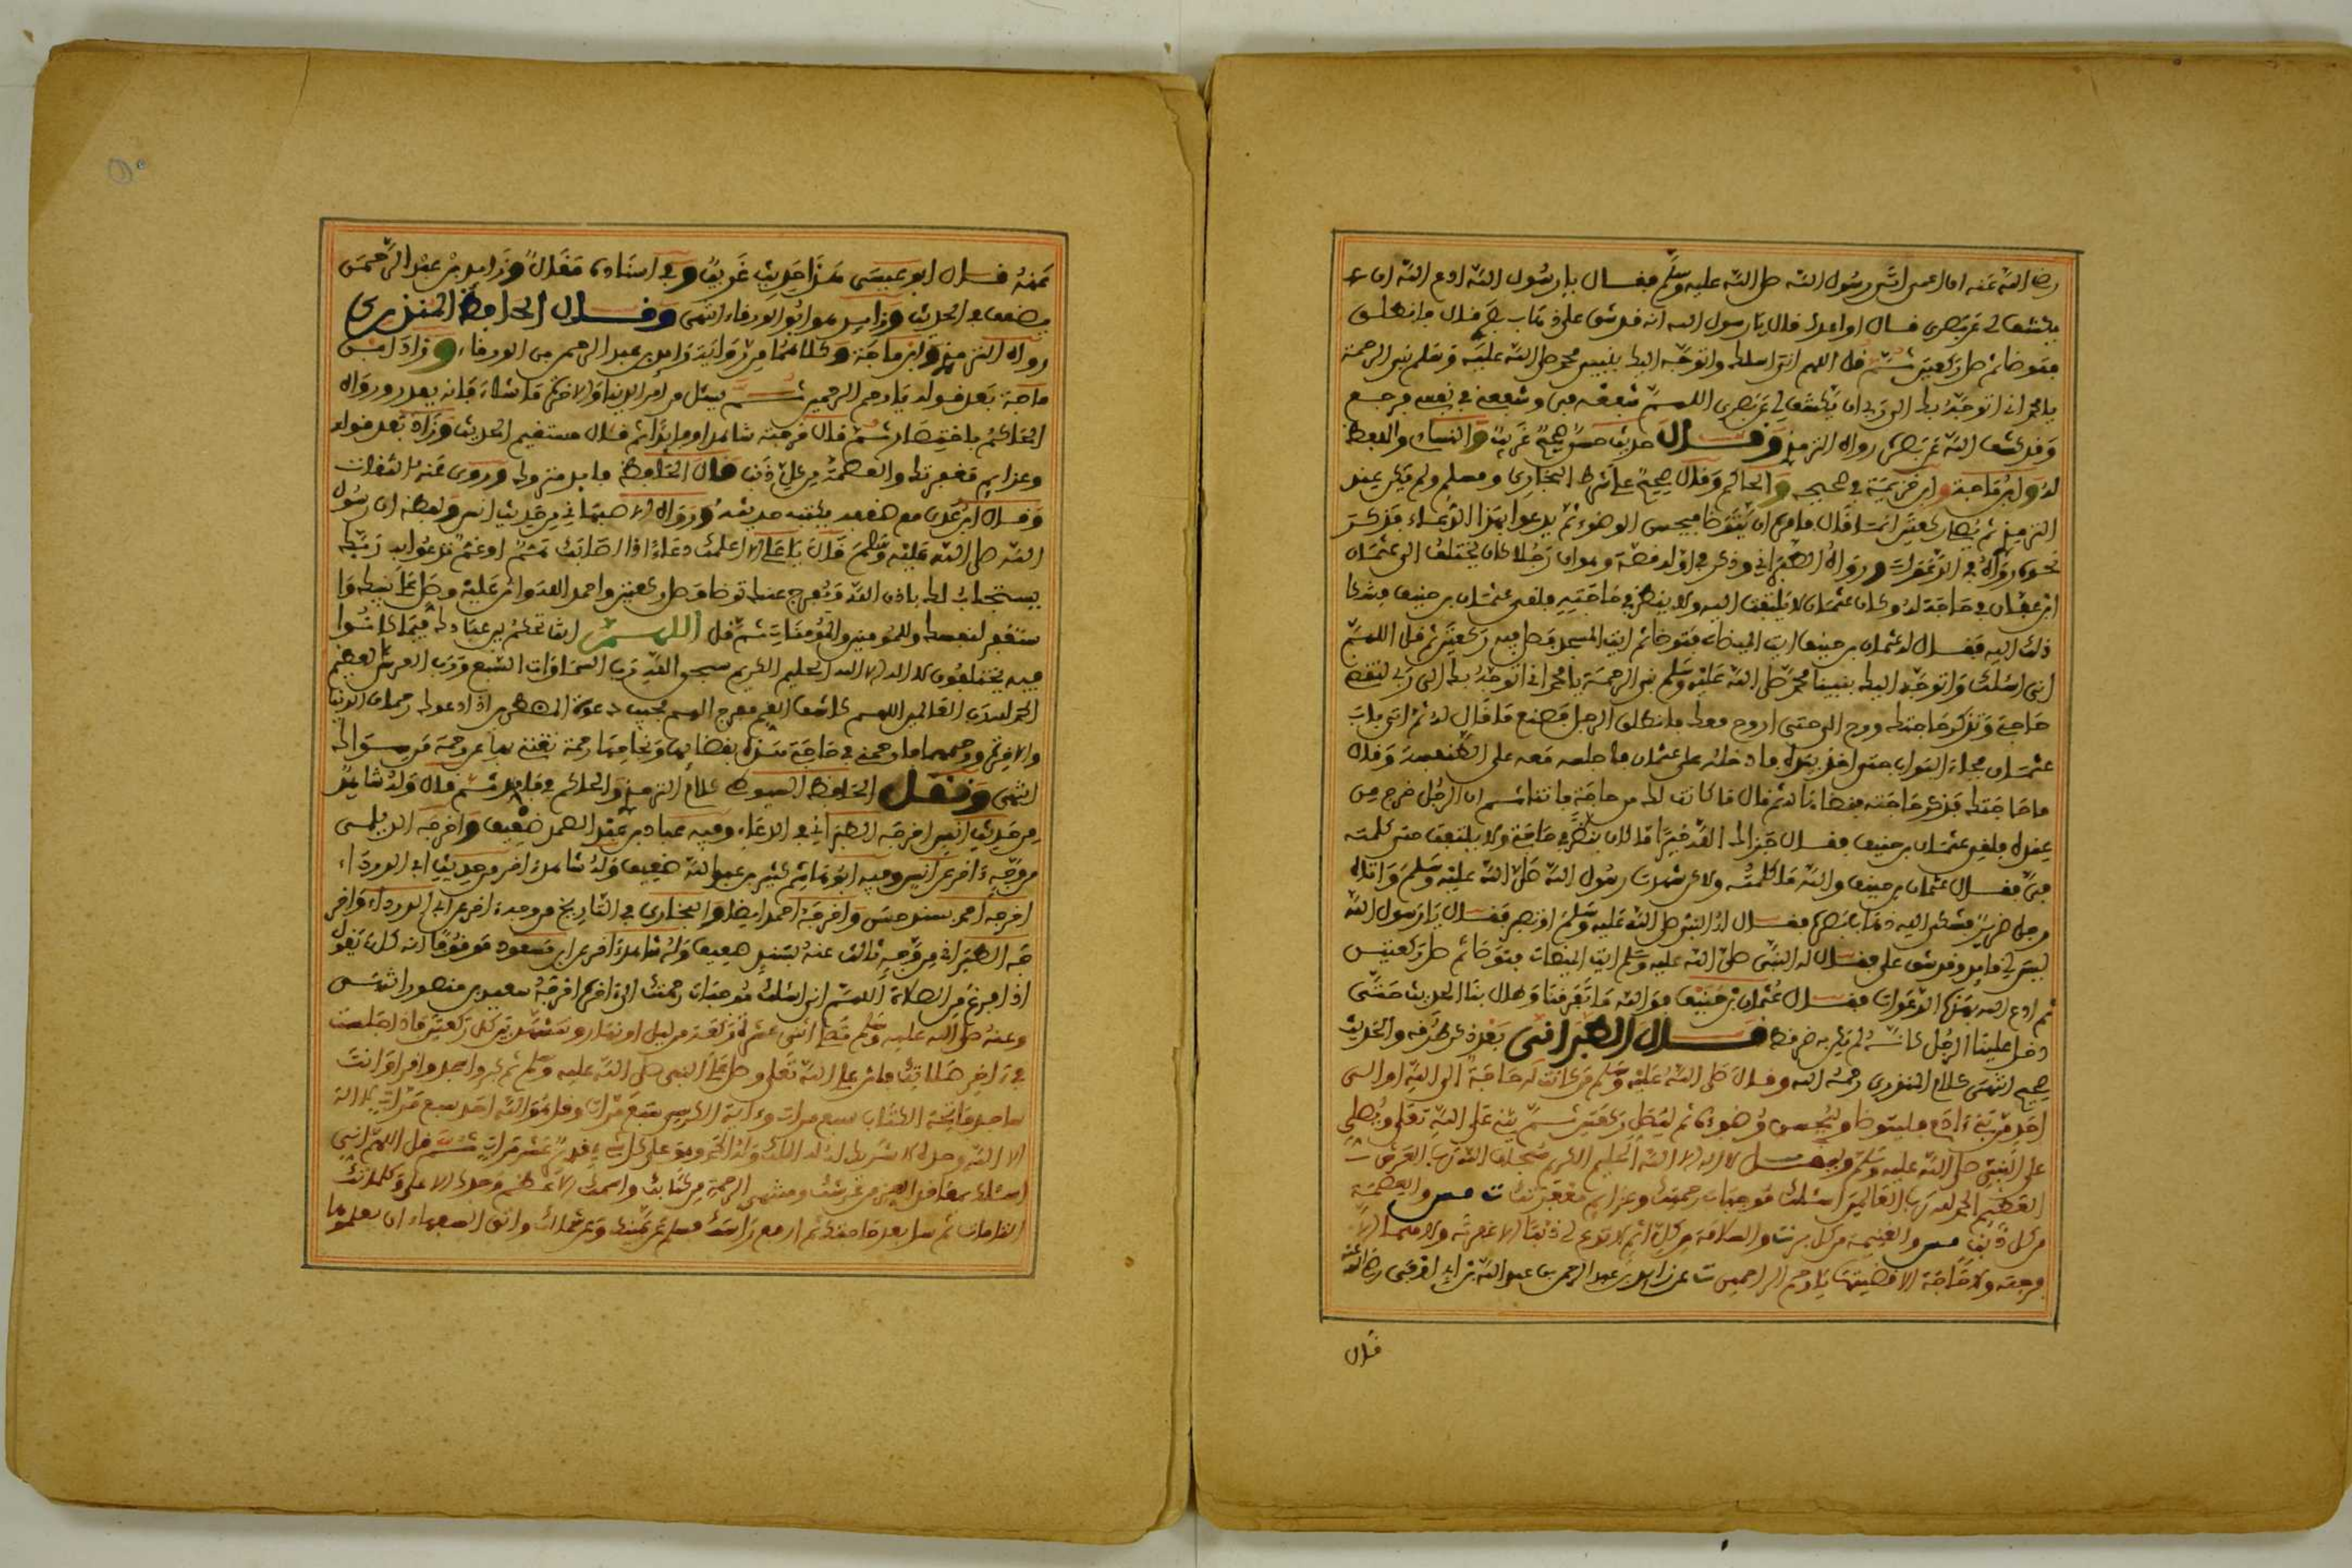 رضي الله عنه ان اعمى اتى رسول الله صلى الله عليه وسلم فقال يا رسول الله ادع الله ان
يكشف لي عن بصري قال او ادعك قال يا رسول الله انه قد شق علي ذهاب بصري قال فانطلق
فتوضا ثم صل ركعتين ثم قل اللهم اني اسئلك واتوجه اليك بنبيي محمد صلى الله عليه وسلم نبي الرحمة
يا محمد اني اتوجه بك الى ربي ان يكشف لي عن بصري اللهم شفعه في وشفعني في نفسي فرجع
وقد كشف الله عن بصره رواه الترمذي وقال حديث حسن صحيح غريب والنساءي واللفظ
له وابن ماجة وابن خزيمة في صحيحه والحاكم وقال صحيح على شرط البخاري ومسلم ولم يكن عند
الترمذي ثم يصل ركعتين انما قال فامره ان يتوضا فيحسن الوضوء ثم يدعو بهذا الدعاء فذكر
نحوه رواه في الدعوات ورواه الطبراني وذكر في اوله قصة وهو ان رجلا كان يختلف الى عثمان
ابن عفان في حاجة له وكان عثمان لا يلتفت اليه ولا ينظر في حاجته فلقي عثمان بن حنيف فشكا
ذلك اليه فقال له عثمان بن حنيف ايت الميضاة فتوضا ثم ايت المسجد فصل فيه ركعتين ثم قل اللهم
اني اسئلك واتوجه اليك بنبينا محمد صلى الله عليه وسلم نبي الرحمة يا محمد اني اتوجه بك الى ربي ليقضي
حاجتي وتذكر حاجتك ورح الي حتى اروح معك فانطلق الرجل فصنع ما قال له ثم اتى باب
عثمان فجاء البواب حتى اخذ بيده فادخله على عثمان فاجلسه معه على الطنفسة وقال
ما حاجتك فذكر حاجته فقضاها له ثم قال ما كانت لك من حاجة فاتنا ثم ان الرجل خرج من
عنده فلقي عثمان بن حنيف فقال جزاك الله خيرا ما كان ينظر في حاجتي ولا يلتفت حتى كلمته
في فقال عثمان بن حنيف والله ما كلمته ولكن شهدت رسول الله صلى الله عليه وسلم واتاه
رجل ضرير فشكى اليه ذهاب بصره فقال له النبي صلى الله عليه وسلم او تصبر فقال يا رسول الله
ليس لي قايد وقد شق علي فقال له النبي صلى الله عليه وسلم ايت الميضاة فتوضا ثم صل ركعتين
ثم ادع الله بهذه الدعوات فقال عثمان بن حنيف فوالله ما تفرقنا وطال بنا الحديث حتى
دخل علينا الرجل كانه لم يكن به ضر قط قال الطبراني بعد ذكر طرقه والحديث
صحيح انتهى كلام المنذري رحمه الله وقال صلى الله عليه وسلم من كانت له حاجة الى الله او الى
احد من بني ءادم فليتوضا وليحسن وضوءه ثم ليصل ركعتين ثم يثن على الله تعلى ويصلي
على النبي صلى الله عليه وسلم وليقل لا اله الا الله الحليم الكريم سبحان الله رب العرش
العظيم الحمد لله رب العالمين اسئلك موجبات رحمتك وعزايم مغفرتك ت مس والعصمة
من كل ذنب مس والغنيمة من كل بر ت والسلامة من كل اثم لا تدع لي ذنبا الا غفرته ولا هما الا
فرجته ولا حاجة الا قضيتها يا ارحم الراحمين ت عن زايد بن عبد الرحمن عن عبد الله بن ابي اوفى رضي الله
قال
عنه قال ابو عيسى هذا حديث غريب وفي اسناده مقال وزايد بن عبد الرحمن
يضعف في الحديث وزايد هو ابو الورقاء انتهى وقال الحافظ المنذري
رواه الترمذي وابن ماجة وكلاهما من رواية زايد بن عبد الرحمن بن الورقاء وزاد ابن
ماجة بعد قوله يا ارحم الرحمين ثم يسئل من امر الدنيا والاخرة ما شاء فانه يقدر ورواه
الحاكم باختصار ثم قال خرجته شاهدا وفايد ثم قال مستقيم الحديث وزاد بعد قوله
وعزايم مغفرتك والعصمة من كل ذنب قال الحافظ فايد متروك وروى عنه الثقات
وقال ابن عدي مع ضعفه يكتب حديثه ورواه الاصبهاني من حديث انس ولفظه ان رسول
الله صلى الله عليه وسلم قال يا علي الا اعلمك دعاء اذا اصابك هم او غم تدعو به ربك
يستجاب لك باذن الله ويفرج عنك توضا وصل ركعتين واحمد الله واثن عليه وصل على نبيك وا
ستغفر لنفسك وللمومنين والمومنات ثم قل اللهم انت تحكم بين عبادك فيما كانوا
فيه يختلفون لا اله الا الله الحليم الكريم سبحن الله رب السماوات السبع ورب العرش العظيم
الحمد لله رب العالمين اللهم كاشف الغم مفرج الهم مجيب دعوة المضطرين اذا دعوك رحمان الدنيا
والاخرة ورحيمهما فارحمني في حاجتي هذه بقضائها ونجاحها رحمة تغنني بها عن رحمة من سواك
انتهى ونقل الحافظ السيوطي كلام الترمذي والحاكم في فايد ثم قال وله شاهد
من حديث انس اخرجه الطبراني في الدعاء وفيه عباد بن عبد الصمد ضعيف واخرجه الديلمي
من وجه ءاخر عن انس وفيه ابو هاشم كثير بن عبد الله ضعيف وله شاهد ءاخر من حديث ابي الدرداء
اخرجه احمد بسند حسن واخرجه احمد ايضا والبخاري في التاريخ من وجه ءاخر عن ابي الدرداء واخر
جه الطبراني من وجه ثالث عنه بسند ضعيف وله شاهد ءاخر عن ابن مسعود موقوفا انه كان يقول
اذا فرغ من الصلاة اللهم اني اسئلك موجبات رحمتك الى اخره اخرجه سعيد بن منصور انتهى
وعنه صلى الله عليه وسلم تصلي اثنى عشرة ركعة من ليل او نهار وتتشهد بين كل ركعتين فاذا جلست
في ءاخر صلاتك فاثن على الله تعلى وصل على النبي صلى الله عليه وسلم ثم كبر واسجد واقرا وانت
ساجد فاتحة الكتاب سبع مرات وءاية الكرسي سبع مرات وقل هو الله احد سبع مرات لا اله
الا الله وحده لا شريك له له الملك وله الحمد وهو على كل شيء قدير عشر مرات ثم قل اللهم اني
اسئلك بمعاقد العز من عرشك ومنتهى الرحمة من كتابك واسمك الاعظم وجدك الاعلى وكلماتك
التامات ثم سل بعد حاجتك ثم ارفع راسك فسلم عن يمينك وعن شمالك واتق السفهاء ان يعلموها